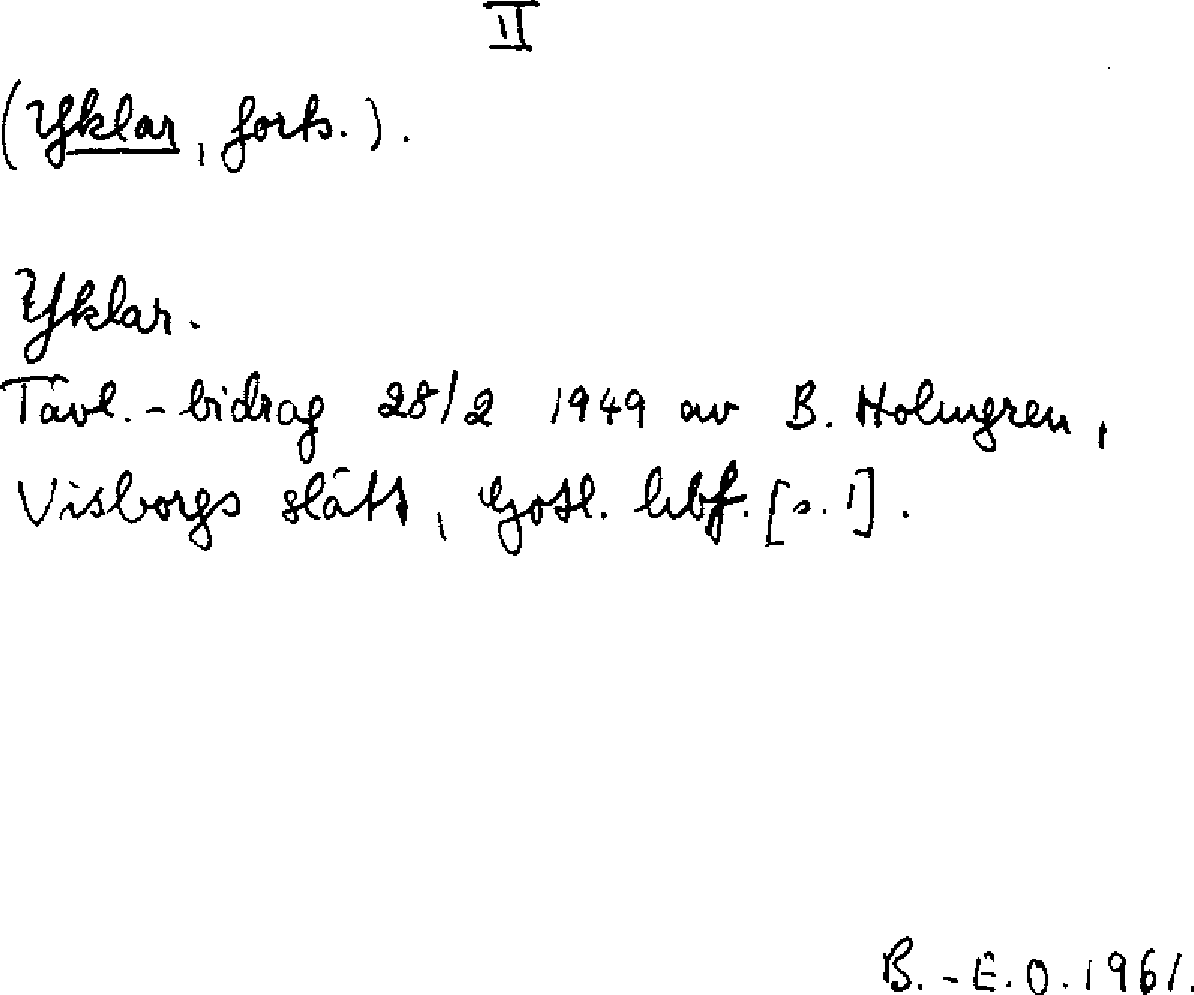 II
(Yklar, forts.).
Yklar.
Tävl.-bidrag 28/2 1949 av B. Holmgren,
Visborgs slätt, Gotl. hbf. [s. 1].
B.-E.O. 1961.